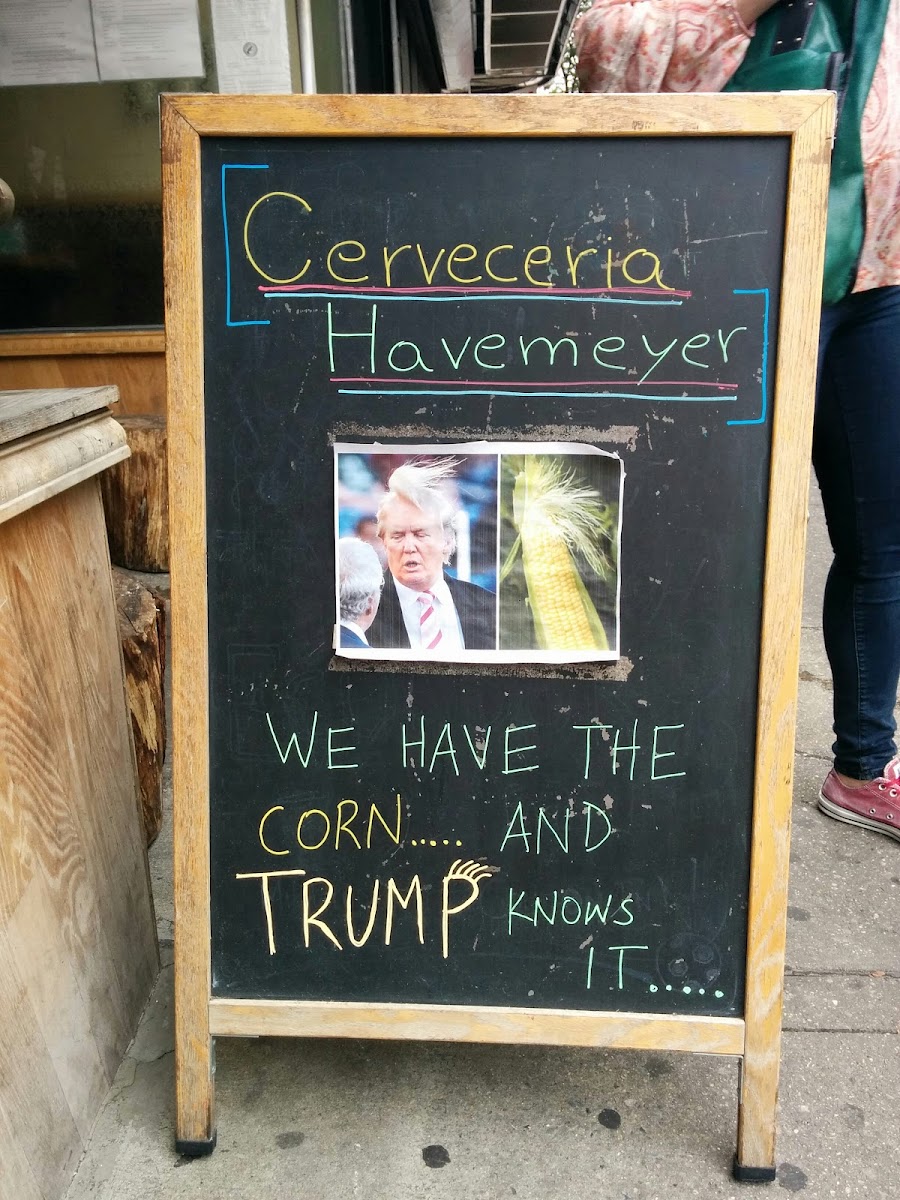 Cerveceria
Havemeyer
WE HAVE THE
CORN..... AND
TRUMP KNOWS
IT.....